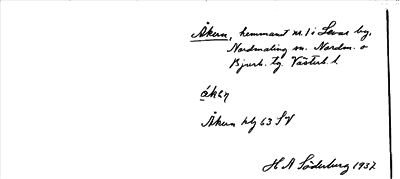 Åkern, hemmant nr. 1 i Levar by,
Nordmaling sn. Nordm. o
Bjurh. tg. Västerb. l.
Åkern hly 63 SV
H A Söderberg 1937